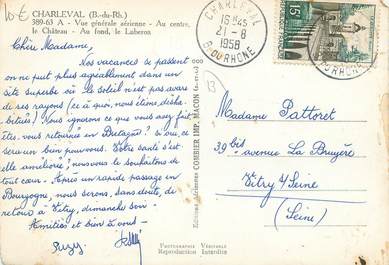 10 €
CHARLEVAL (B.-du-Rh.)
389-63 A - Vue générale aérienne - Au centre,
le Château - Au fond, le Luberon
Chère Madame,
Nos vacances se passent
on ne peut plus agréablement dans un
site superbe où le soleil n'est pas avare
de ses rayons (ce à quoi, nous étions, désha-
bitués) Nous ignorons ce que vous avez fait,
êtes-vous retournés en Bretagne ? si oui, ce
sera un bien pour vous. Votre santé s'est
elle améliorée, nous vous le souhaitons de
tout cœur. Après un rapide passage en
Bourgogne, nous serons, sans doute, de
retour à Vitry, dimanche soir.
Amitiés et bien à vous
Suzy
Editions Aériennes COMBIER IMP. MACON (S.-et-L.)
PHOTOGRAPHIE VÉRITABLE
Reproduction Interdite
CHARLEVAL
16H45
21-8
1958
B. DU RHONE
15F
Madame Pattoret
39bis avenue La Bruyère
Vitry s/ Seine
(Seine)